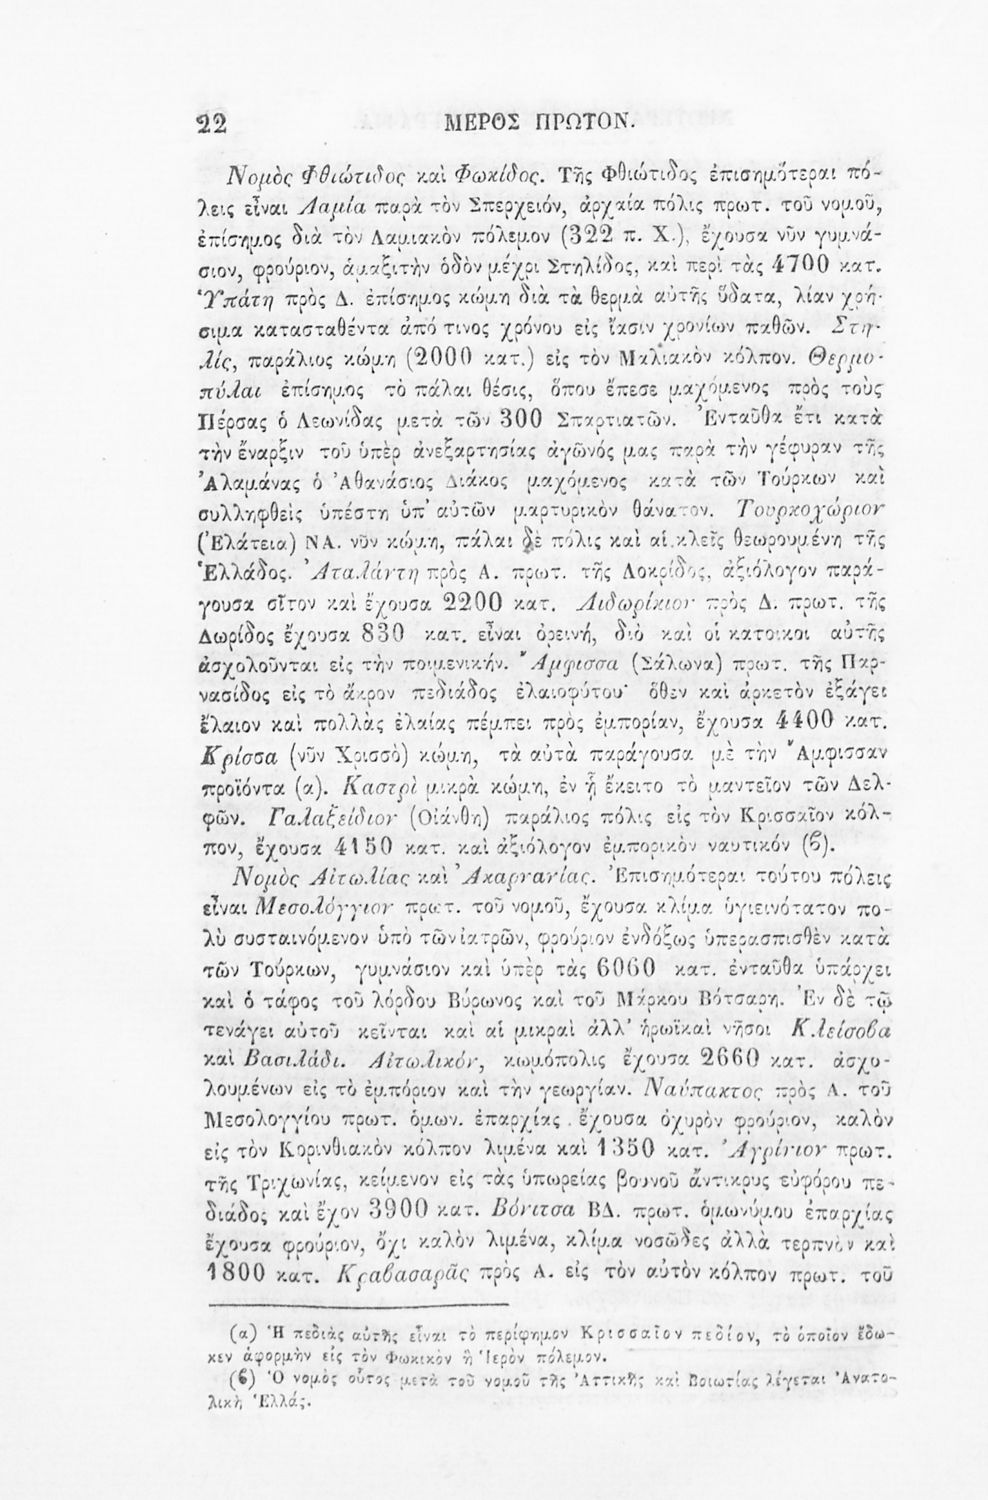 22 ΜΕΡΟΣ ΠΡΩΤΟΝ.
Νομὸς Φθιώτιδος καὶ Φωκίδος. Τῆς Φθιώτιδος ἐπισημότεραι πό-
λεις εἶναι Λαμία παρὰ τὸν Σπερχειόν, ἀρχαία πόλις πρωτ. τοῦ νομοῦ,
ἐπίσημος διὰ τὸν Λαμιακὸν πόλεμον (322 π. Χ.), ἔχουσα νῦν γυμνά-
σιον, φρούριον, ἁμαξιτὴν ὁδὸν μέχρι Στηλίδος, καὶ περὶ τὰς 4700 κατ.
Ὑπάτη πρὸς Δ. ἐπίσημος κώμη διὰ τὰ θερμὰ αὐτῆς ὕδατα, λίαν χρή-
σιμα κατασταθέντα ἀπό τινος χρόνου εἰς ἴασιν χρονίων παθῶν. Στη-
λίς, παράλιος κώμη (2000 κατ.) εἰς τὸν Μαλιακὸν κόλπον. Θερμο-
πύλαι ἐπίσημος τὸ πάλαι θέσις, ὅπου ἔπεσε μαχόμενος πρὸς τοὺς
Πέρσας ὁ Λεωνίδας μετὰ τῶν 300 Σπαρτιατῶν. Ἐνταῦθα ἔτι κατὰ
τὴν ἔναρξιν τοῦ ὑπὲρ ἀνεξαρτησίας ἀγῶνός μας παρὰ τὴν γέφυραν τῆς
Ἀλαμάνας ὁ Ἀθανάσιος Διάκος μαχόμενος κατὰ τῶν Τούρκων καὶ
συλληφθεὶς ὑπέστη ὑπ' αὐτῶν μαρτυρικὸν θάνατον. Τουρκοχώριον
(Ἐλάτεια) ΝΑ. νῦν κώμη, πάλαι δὲ πόλις καὶ αἱ κλεῖς θεωρουμένη τῆς
Ἑλλάδος. Ἀταλάντη πρὸς Α. πρωτ. τῆς Λοκρίδος, ἀξιόλογον παρά-
γουσα σῖτον καὶ ἔχουσα 2200 κατ. Λιδωρίκιον πρὸς Δ. πρωτ. τῆς
Δωρίδος ἔχουσα 830 κατ. εἶναι ὀρεινή, διὸ καὶ οἱ κατοικοι αὐτῆς
ἀσχολοῦνται εἰς τὴν ποιμενικήν. Ἄμφισσα (Σάλωνα) πρωτ. τῆς Παρ-
νασίδος εἰς τὸ ἄκρον πεδιάδος ἐλαιοφύτου· ὅθεν καὶ ἀρκετὸν ἐξάγει
ἔλαιον καὶ πολλὰς ἐλαίας πέμπει πρὸς ἐμπορίαν, ἔχουσα 4400 κατ.
Κρίσσα (νῦν Χρισσὸ) κώμη, τὰ αὐτὰ παράγουσα μὲ τὴν Ἄμφισσαν
προϊόντα (α). Καστρὶ μικρὰ κώμη, ἐν ᾗ ἔκειτο τὸ μαντεῖον τῶν Δελ-
φῶν. Γαλαξείδιον (Οἰάνθη) παράλιος πόλις εἰς τὸν Κρισσαῖον κόλ-
πον, ἔχουσα 4150 κατ. καὶ ἀξιόλογον ἐμπορικὸν ναυτικόν (ϐ).
Νομὸς Αἰτωλίας καὶ Ἀκαρνανίας. Ἐπισημότεραι τούτου πόλεις
εἶναι Μεσολόγγιον πρωτ. τοῦ νομοῦ, ἔχουσα κλίμα ὑγιεινότατον πο-
λὺ συσταινόμενον ὑπὸ τῶν ἰατρῶν, φρούριον ἐνδόξως ὑπερασπισθὲν κατὰ
τῶν Τούρκων, γυμνάσιον καὶ ὑπὲρ τὰς 6060 κατ. ἐνταῦθα ὑπάρχει
καὶ ὁ τάφος τοῦ λόρδου Βύρωνος καὶ τοῦ Μάρκου Βότσαρη. Ἐν δὲ τῷ
τενάγει αὐτοῦ κεῖνται καὶ αἱ μικραὶ ἀλλ' ἡρωϊκαὶ νῆσοι Κλείσοϐα
καὶ Βασιλάδι. Αἰτωλικόν, κωμόπολις ἔχουσα 2660 κατ. ἀσχο-
λουμένων εἰς τὸ ἐμπόριον καὶ τὴν γεωργίαν. Ναύπακτος πρὸς Α. τοῦ
Μεσολογγίου πρωτ. ὁμων. ἐπαρχίας . ἔχουσα ὀχυρὸν φρούριον, καλὸν
εἰς τὸν Κορινθιακὸν κόλπον λιμένα καὶ 1350 κατ. Ἀγρίνιον πρωτ.
τῆς Τριχωνίας, κείμενον εἰς τὰς ὑπωρείας βουνοῦ ἄντικρυς εὐφόρου πε-
διάδος καὶ ἔχον 3900 κατ. Βόνιτσα ΒΔ. πρωτ. ὁμωνύμου ἐπαρχίας
ἔχουσα φρούριον, ὄχι καλὸν λιμένα, κλίμα νοσῶδες ἀλλὰ τερπνὸν καὶ
1800 κατ. Κραϐασαρᾶς πρὸς Α. εἰς τὸν αὐτὸν κόλπον πρωτ. τοῦ
(α) Ἡ πεδιὰς αὐτῆς εἶναι τὸ περίφημον Κρισσαῖον πεδίον, τὸ ὁποῖον ἔδω-
κεν ἀφορμὴν εἰς τὸν Φωκικὸν ἢ Ἱερὸν πόλεμον.
(ϐ) Ὁ νομὸς οὗτος μετὰ τοῦ νομοῦ τῆς Ἀττικῆς καὶ Βοιωτίας λέγεται Ἀνατο-
λικὴ Ἑλλάς.